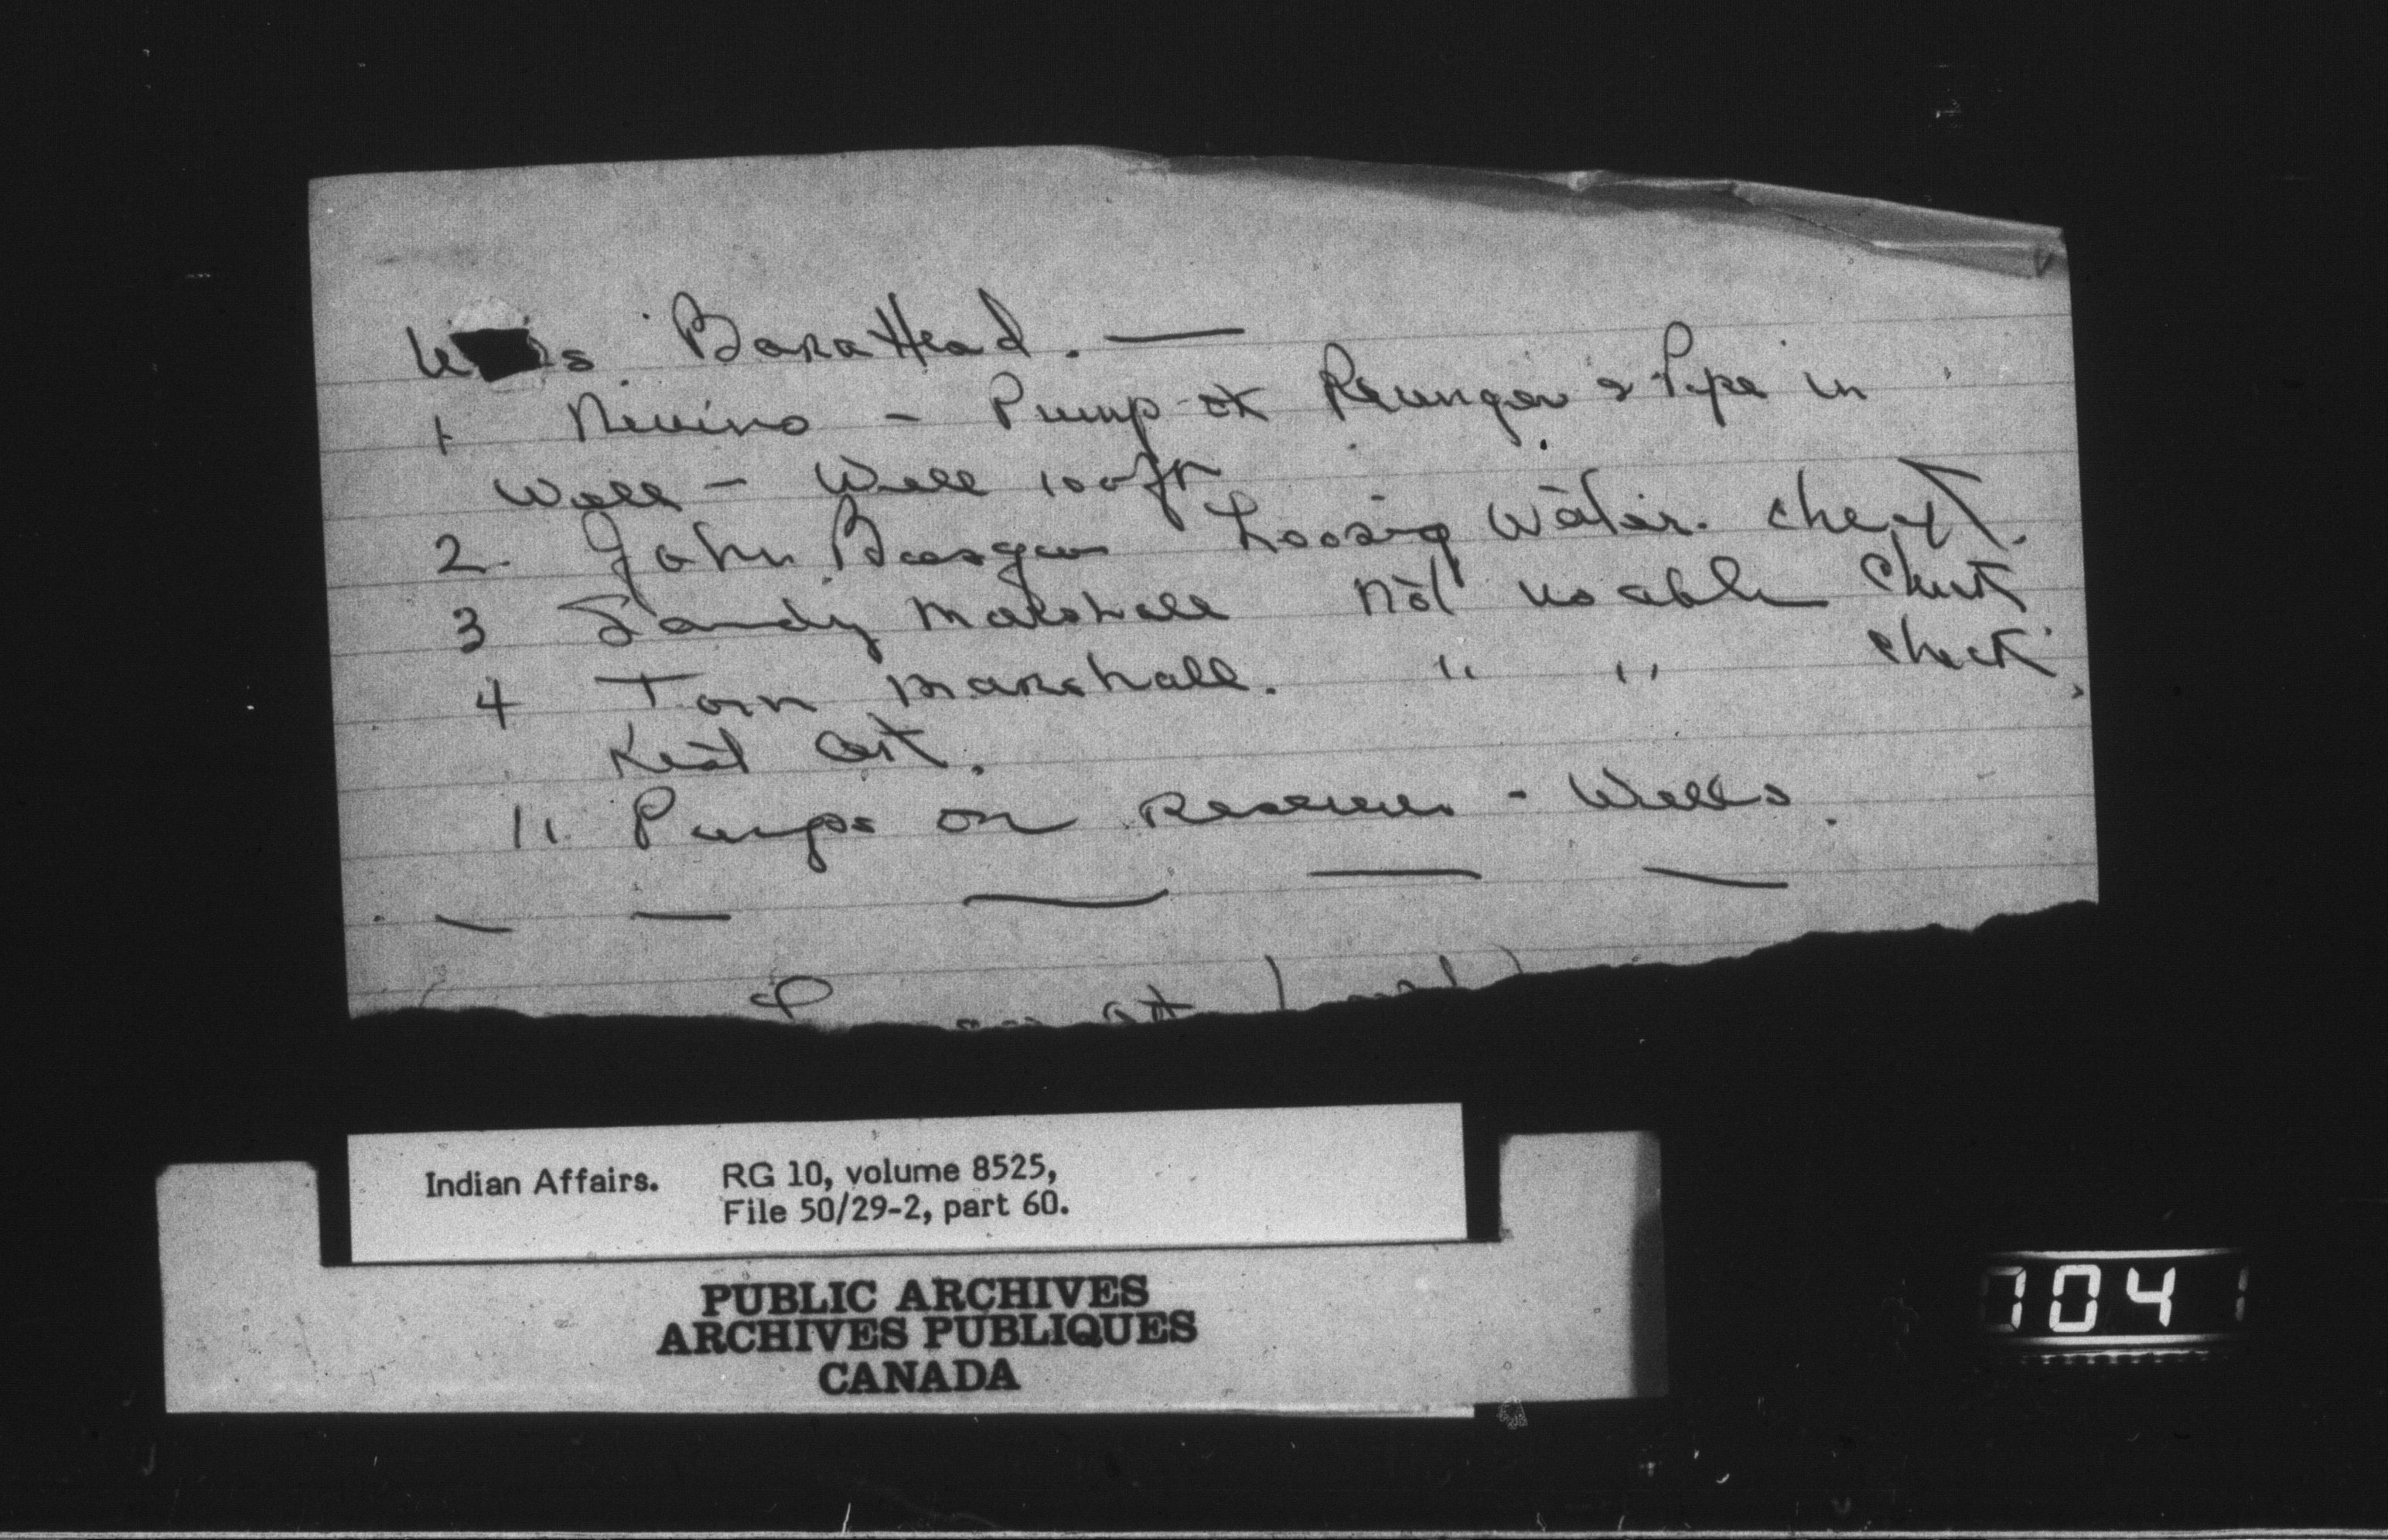 W s. BaraHead. —
1 Nevino - Pump ok Plunger & Pipe in
Well - Well 100ft
2. John Loosing Water. check.
3 Sandy Marshall not usable Check
4 Tom Marshall. " " check.
11. Pumps on Reserve - Wells.
— — — — —
Indian Affairs. RG 10, volume 8525,
File 50/29-2, part 60.
PUBLIC ARCHIVES
ARCHIVES PUBLIQUES
CANADA
704